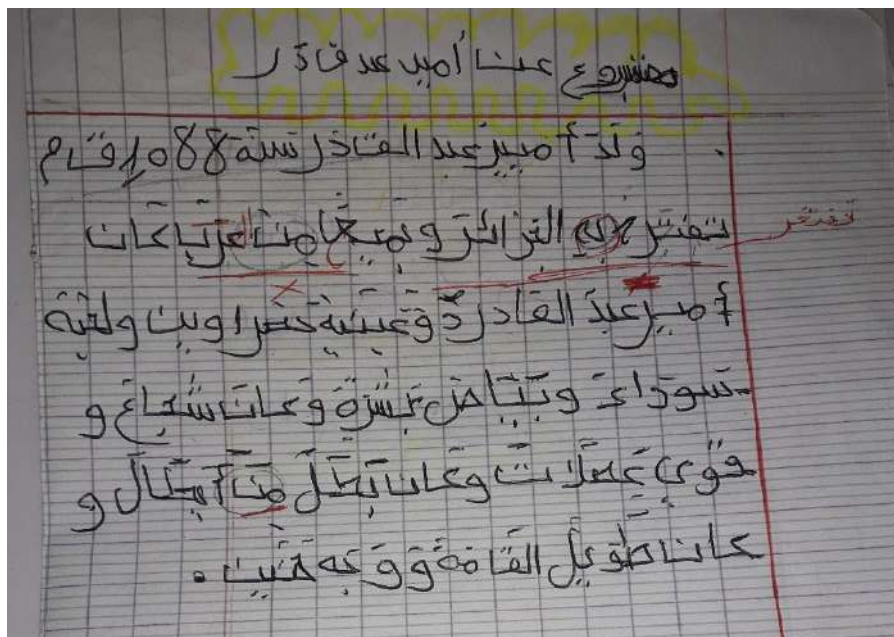 مشروع عنا أمير عبد ق در
ولد أمير عبد القادر نسة 1088 فقدم
تفتخر به الجزائر وجميعا من عربا كان تفتخر
أمير عبد القادر ذو عينيه خضراوين ولحية
سوداء وبياض بشرة وكان شجاع و
قوي عضلات وكان بطل من أبطال و
كان طويل القامة ووجه حنين.